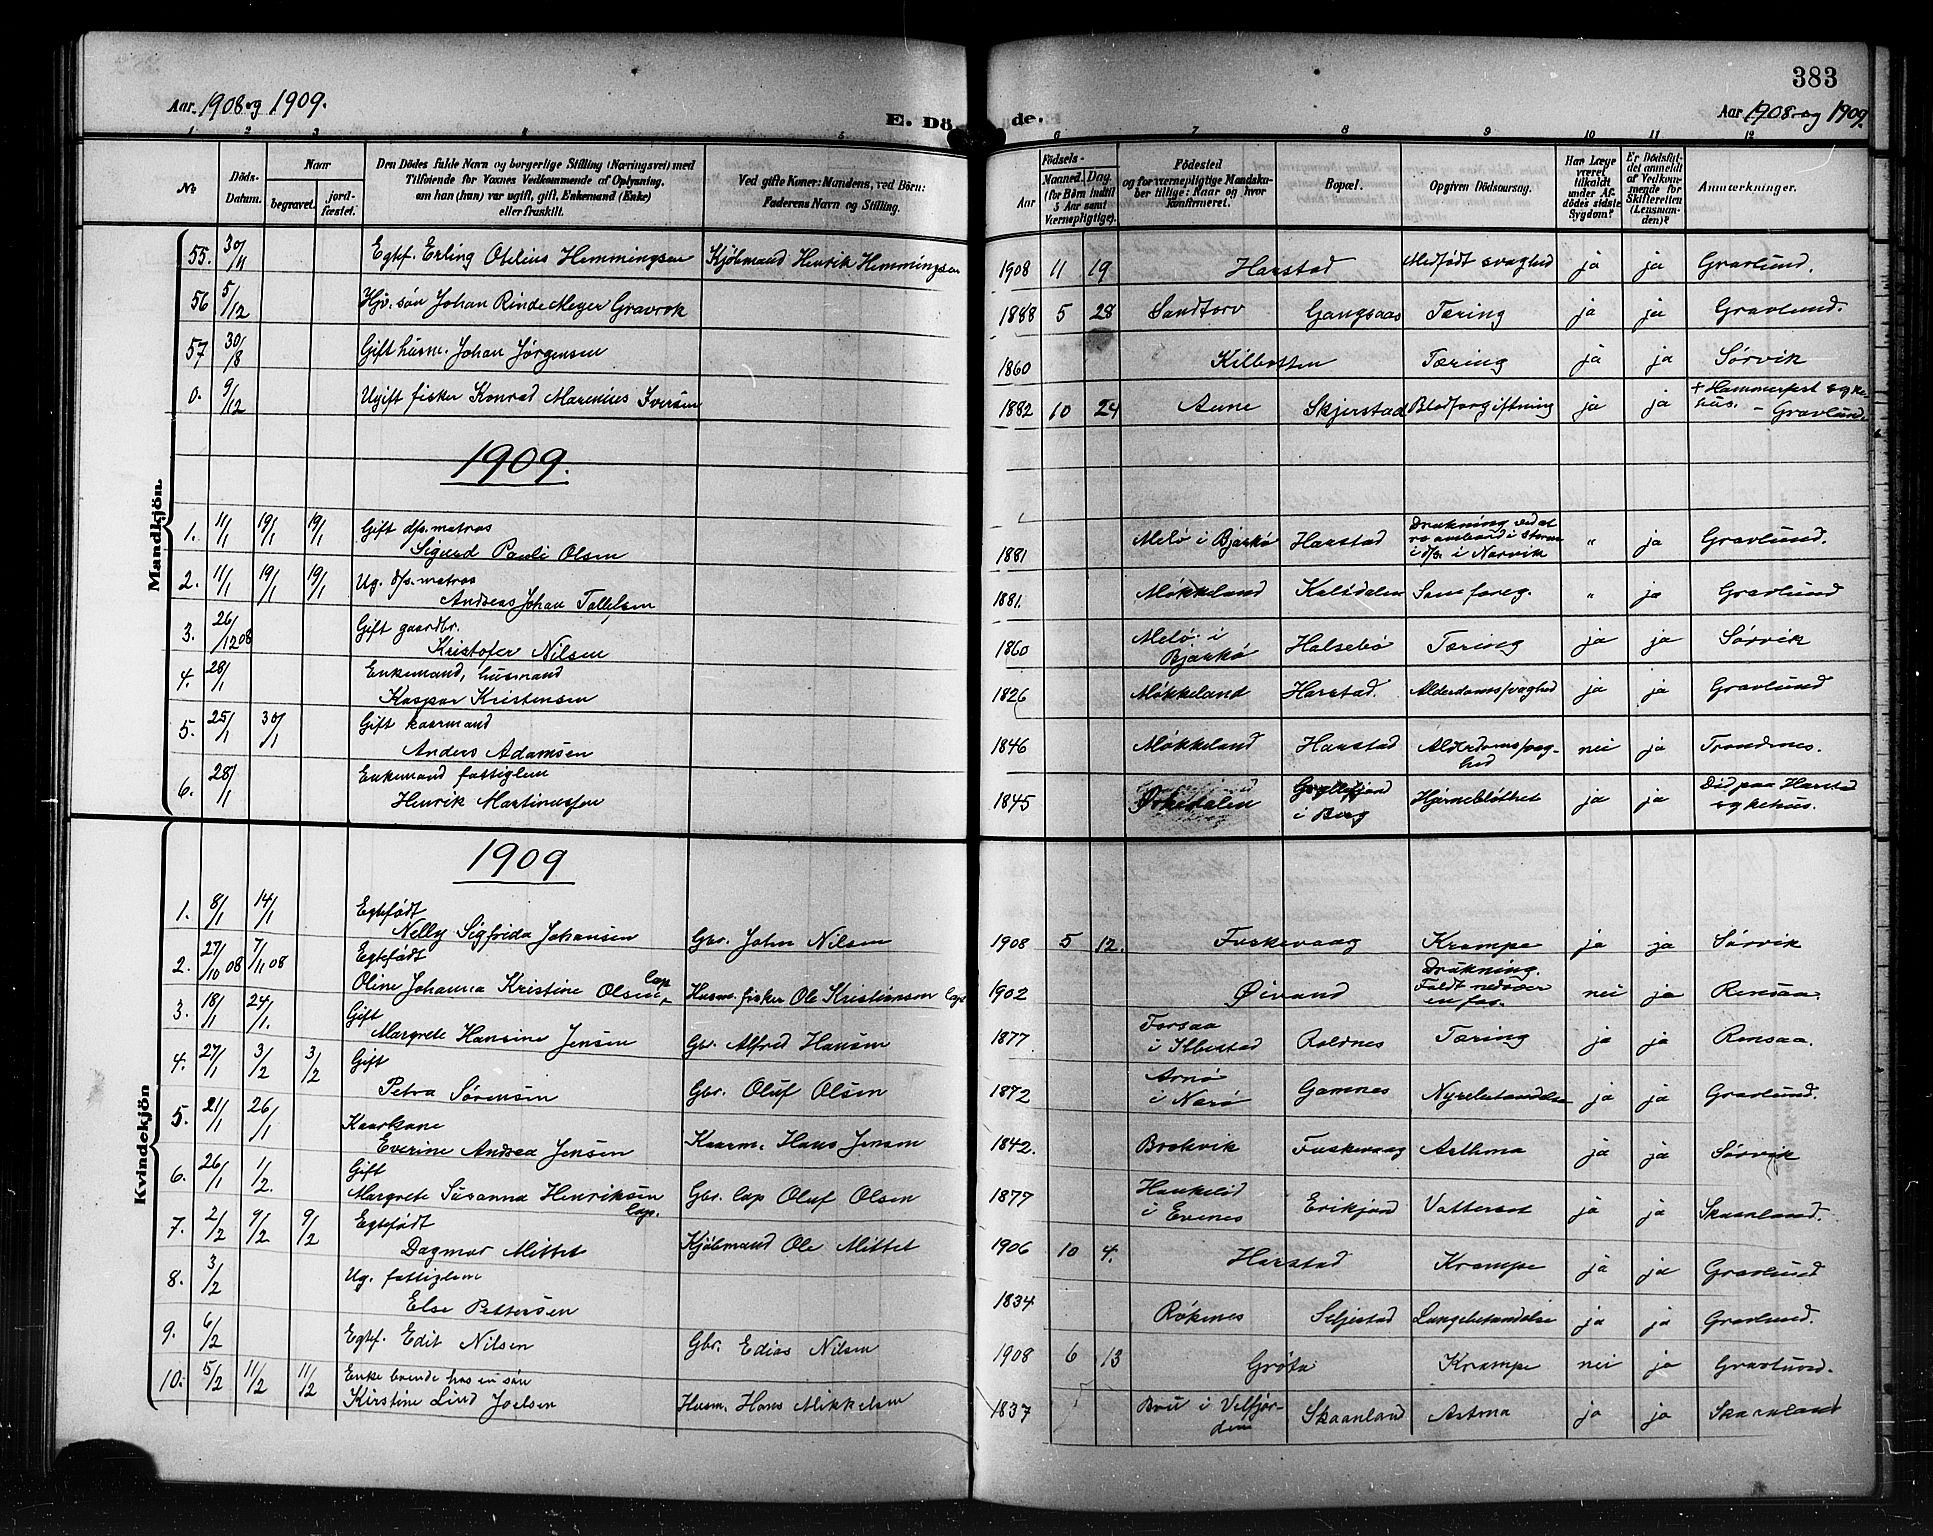 383
Aar 1908 og 1909.
E. Dö de.
Aar 1908 og 1909.
1 2 3 4 5 6 7 8 9 10 11 12
No
Döds-Datum.
Naar
begravet.
jord-fæstet.
Den Dödes fulde Navn og borgerlige Stilling (Næringsvei) med
Tilföiende for Voxnes Vedkommende af Oplysning,
om han (hun) var ugift, gift, Enkemand (Enke)
eller fraskilt.
Ved gifte Koner: Mandens, ved Börn:
Faderens Navn og Stilling.
Födsels-
Aar
Maaned. Dag
(for Börn indtil
5 Aar samt
Værnepligtige).
Födested
og for værnepligtige Mandska-
ber tillige: Naar og hvor
konfirmeret.
Bopæl.
Opgiven Dödsaarsag.
Har Læge
været
tilkaldt
under Af-
dödes sidste
Sygdom?
Er Dödsfal-
det anmeldt
af Vedkom-
mende for
Skifteretten
(Lensman-
den)?
Anmærkninger.
Mandkjön.
55. 30/11 Egtef. Erling Otelius Hemmingsen Kjöbmand Henrik Hemmingsen 1908 11 19 Harstad Medfødt svaghed ja ja Gravlund.
56 5/12 Hjv. søn Johan Rinde Meyer Gravrok 1888 5 28 Sandtorv Gangsaas Tæring ja ja Gravlund.
57 30/8 Gift husm. Johan Jørgensen 1860 Kilbotten Tæring ja ja Sørvik
0. 9/12 Ugift fisker Konrad Marenius Iversen 1882 10 24 Aune Skjerstad Blodforgiftning ja ja + Hammerfest syke-
hus. - Gravlund.
1909.
1. 11/1 19/1 19/1 Gift d/s. matros
Sigurd Pauli Olsen 1881 Melø i Bjarkø Harstad Drukning ved at
ro ombord i storm
i d/s. i Narvik " ja Gravlund.
2. 11/1 19/1 19/1 Ug. d/s. matros
Andreas Johan Tollefsen 1881. Møkkeland Kalsdalen Som foreg. " ja Gravlund
3. 26/12 08 Gift gaardbr.
Kristofer Nilsen 1860 Melø i
Bjarkø Halsebø Tæring ja ja Sørvik
4. 28/1 Enkemand, husmand
Kaspar Kristensen 1826 Møkkeland Harstad. Alderdomssvaghed ja ja Gravlund
5. 25/1 30/1 Gift kaarmand
Anders Adamsen 1846 Møkkeland Harstad Alderdomssvag-
hed nei ja Trondenes.
6. 28/1 Enkemand fattiglem
Henrik Martinussen 1845 Orkedalen Gryllefjord
i Berg Hjerneblødhet ja ja Död paa Harstad
sykehus.
Kvindekjön
1909
1. 8/1 14/1 Egtefødt
Nelly Sigfrida Johansen Gbr. John Nilsen 1908 5 12. Fuskevaag Krampe ja ja Sørvik
2. 27/10 08 7/11 08 Egtefødt
Oline Johanna Kristine Olsen lap Husm. fisker Ole Kristiansen lap 1902 Øivand Drukning.
Faldt ned
nei ja Rensaa.
3. 18/1 24/1. Gift
Margrete Hansine Jensen Gbr. Alfred Hansen 1877 Forsaa
i Ibestad Roldnes Tæring ja ja Rensaa.
4. 27/1 3/2 3/2 Gift
Petra Sørensen Gbr. Oluf Olsen 1872 Arnø
i Nærø Gamnes Nyrebetændelse ja ja Gravlund.
5. 21/1 26/1 Kaarkone
Everine Andrea Jensen Kaarm. Hans Jensen 1842. Brokvik Fuskevaag Asthma ja ja Sørvik
6. 26/1 1/2. Gift
Margrete Susanna Henriksen lap. Gbr. lap Oluf Olsen 1877
i Evenes Erikjord Vattersot ja ja Skaanland.
7. 2/2 9/2 9/2 Egtefødt
Dagmar Mittet Kjöbmand Ole Mittet 1906 10 4. Harstad Krampe ja ja Gravlund
8. 3/2 Ug. fattiglem
Else Pettersen 1834 Røkenes Seljestad Lungebetændelse ja ja Gravlund.
9. 6/2 Egtf. Edit Nilsen Gbr. Edias Nilsen 1908 6 13 Grøta Krampe nei ja Gravlund.
10. 5/2 11/2 11/2 Enke boende hos en søn
Kirstine Lind Joelsen Husm. Hans Mikkelsen 1837 Bru i Velfjor-
den Skaanland Astma ja ja Skaanland